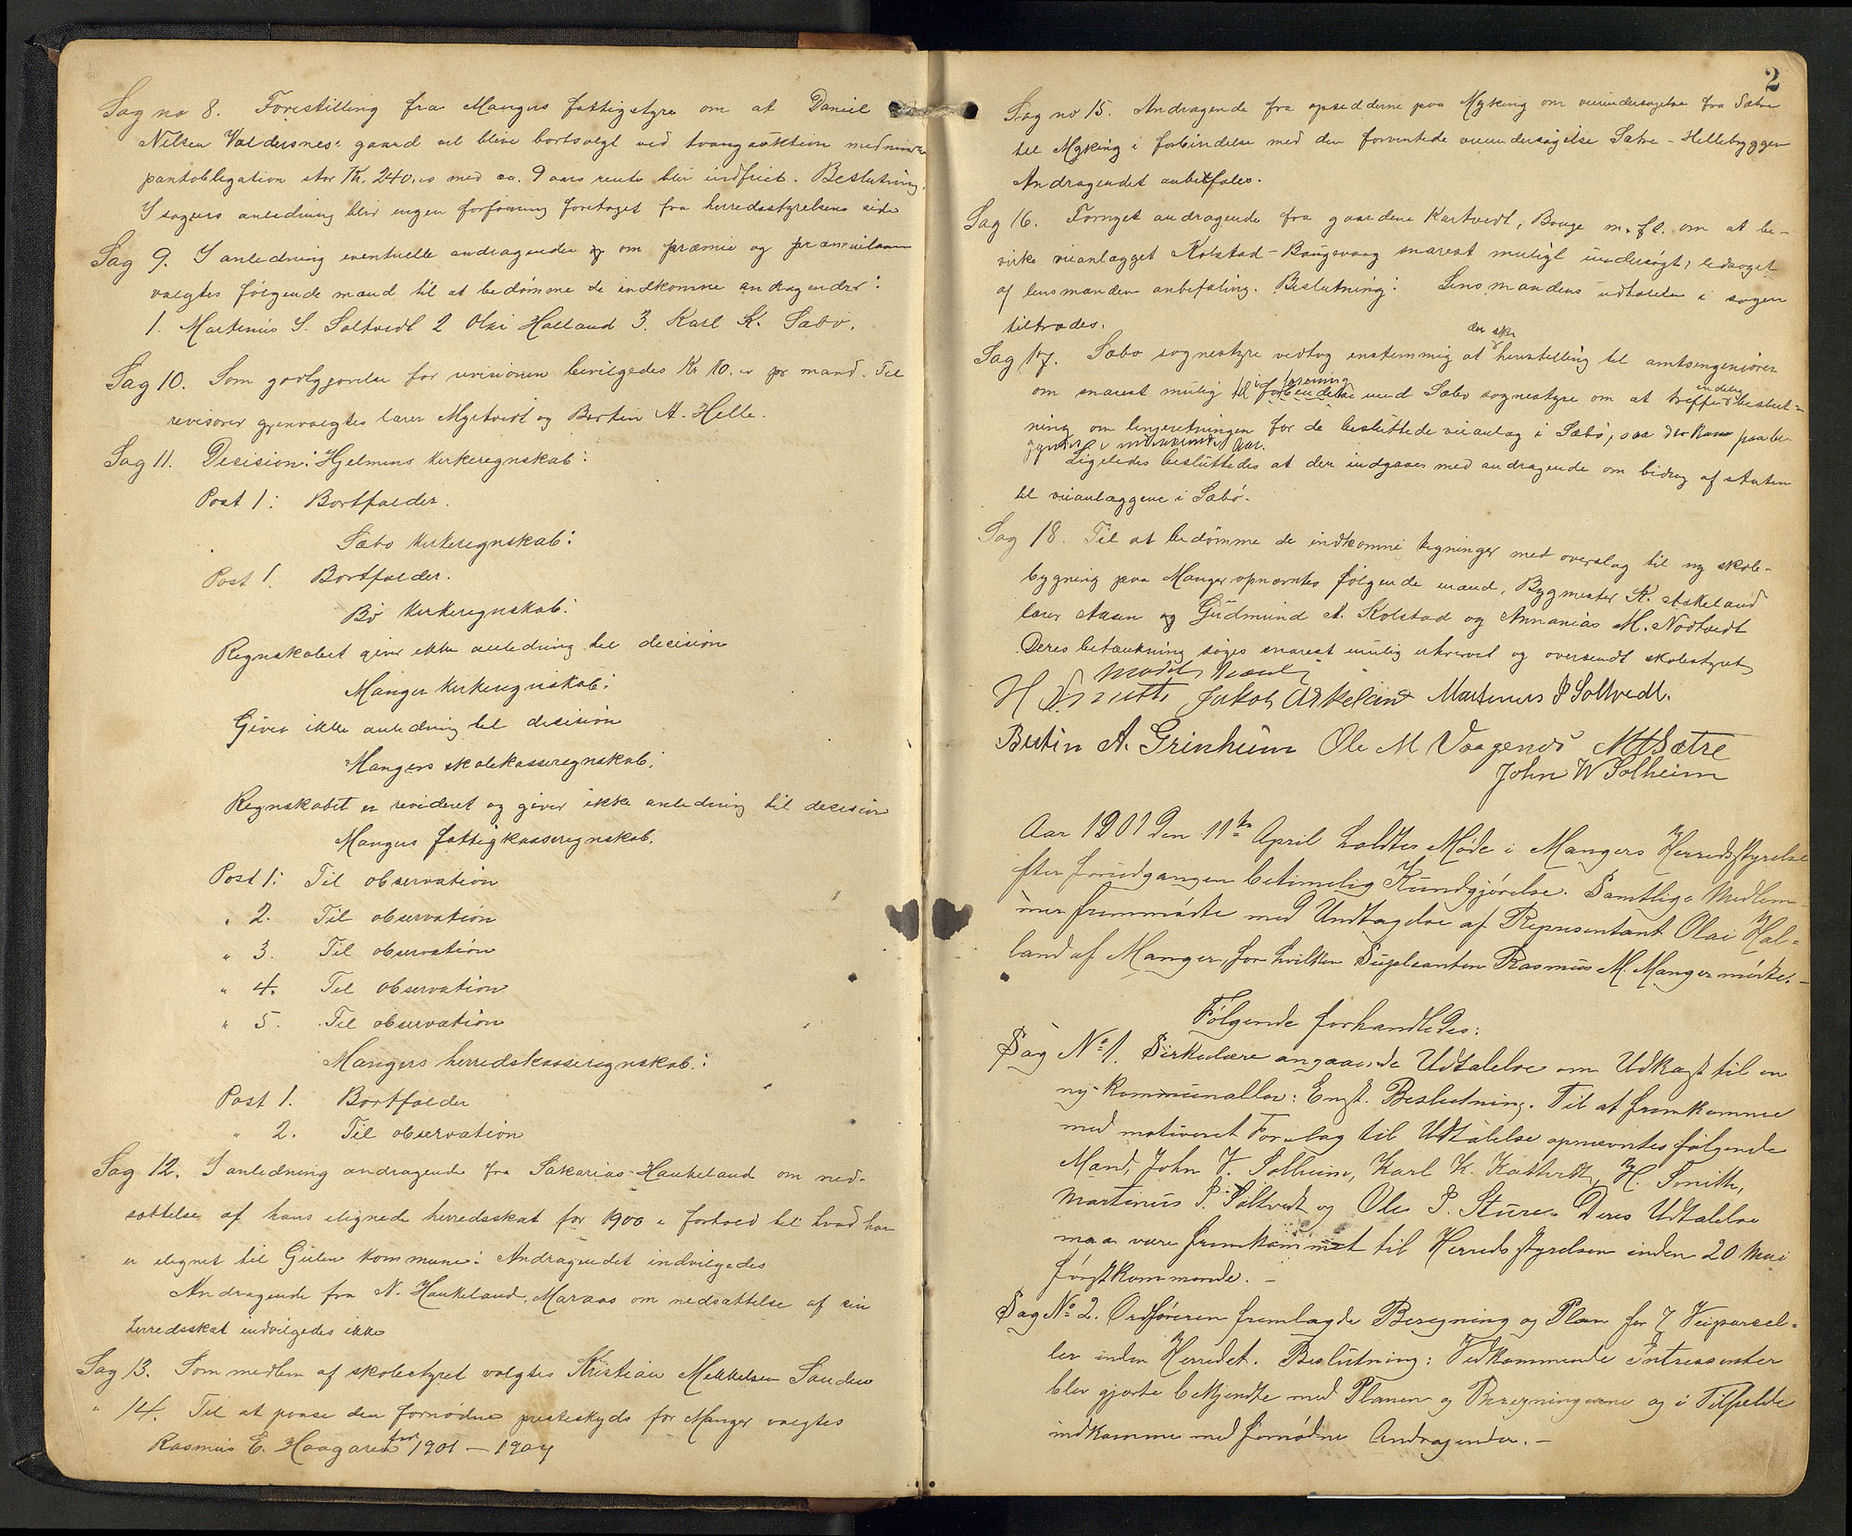 Sag no 8. Forestilling fra Mangers fattigstyre om at Daniel
Nilsen Valdersnes' gaard vil blive bortsolgt ved tvangsauktion medmindre
pantobligation stor Kr. 240,00 med ca. 9 aars rente blir indfriet. Beslutning.
I sagens anledning blir ingen forføining foretaget fra herredsstyrelsens side
Sag 9. I anledning eventuelle andragender om præmie og præmielaan
valgtes følgende mænd til at bedømme de indkomne andragender:
1. Martinus S. Soltvedt 2 Olai Halland 3. Karl K. Sæbø.
Sag 10. Som godtgjørelse for revisionen bevilgedes Kr 10.00 pr mand. Til
revisorer gjenvalgtes lærer Myrtvedt og Bertin A. Helle.
Sag 11. Decision: Hjelmens kirkeregnskab:
Post 1: Bortfalder.
Sæbø kirkeregnskab:
Post 1. Bortfalder.
Bø kirkeregnskab:
Regnskabet giver ikke anledning til decision
Manger kirkeregnskab:
Giver ikke anledning til decision
Mangers skolekasseregnskab:
Regnskabet er revideret og giver ikke anledning til decision
Mangers fattigkasseregnskab.
Post 1: Til observation
" 2. Til observation
" 3. Til observation
" 4. Til observation
" 5. Til observation
Mangers herredskasseregnskab:
Post 1. Bortfalder
" 2. Til observation
Sag 12. I anledning andragende fra Sakarias Haukeland om ned-
sættelse af hans ilignede herredsskat for 1900 i forhold til hvad han
er ilignet til Gulen kommune: Andragendet indvilgedes
Andragende fra N. Haukeland, Maraas om nedsættelse af sin
herredsskat indvilgedes ikke
Sag 13. Som medlem af skolestyret valgtes Kristian Mikkelsen Sanden
" 14. Til at paase den fornødne presteskyds for Manger valgtes
Rasmus E. Haagaren for 1901 – 1904
2
Sag no 15. Andragende fra opsidderne paa Myking om veiundersøgelse fra Sætre
til Myking i forbindelse med den forventede veiundersøgelse Sætre - Hellebyggen
Andragendet anbefales.
Sag 16. Fornyet andragende fra gaardene Kartveit, Bouge m. fl. om at be-
virke veianlægget Kolstad - Baugevaag snarest muligt undersøgt, ledsaget
af lensmandens anbefaling. Beslutning: Lensmandens udtalelse i sagen
tiltrædes.
Sag 17. Sæbø sognestyre vedtog enstemmig at der sker henstilling til amtsingeniøren
om snarest mulig i forening med Sæbø sognestyre om at treffe endelig beslut-
ning om linjeretningen for de besluttede veianlæg i Sæbø, saa der kan paabe-
gyndes i indeværende aar.
Ligeledes besluttedes at der indgaaes med andragende om bidrag af staten
til veianlæggene i Sæbø.
Sag 18. Til at bedømme de indkomne tegninger med overslag til ny skole-
bygning paa Manger opnævntes følgende mænd, Bygmester K. Askeland
lærer Aasen og Gudmund A. Kolstad og Annanias M. Nodtvedt
Deres betænkning søges snarest mulig erhvervet og oversendt skolestyret
Mødet hævet
H Smith Jakob Askeland Martinus S Soltvedt.
Bertin A. Grinheim Ole M Vaagenes M H Sætre
John W Solheim
Aar 1901 den 11te April holdtes Møde i Mangers Herredsstyrelse
efter forudgangen betimelig Kundgjørelse. Samtlige Medlem-
mer fremmødte med Undtagelse af Repræsentant Olai Hal-
land af Manger, for hvilken Supleanten Rasmus M. Manger mødte. –
Følgende forhandledes:
Sag No 1. Sirkulære angaaende Udtalelse om Udkast til en
ny kommunallov: Enst. Beslutning. Til at fremkomme
med motiveret Forslag til Udtalelse opnævntes følgende
Mænd, John V. Solheim, Karl K. Kattveit, H. Smith,
Martinus S. Soltvedt og Ole P. Sture. Deres Udtalelse
maa være fremkommet til Herredsstyrelsen inden 20 Mai
førstkommende. –
Sag No 2. Ordføreren fremlagde Beregning og Plan for 7 Veiparsel-
ler inden Herredet. Beslutning: Vedkommende Intressenter
blev gjorte bekjendte med Planen og Beregningerne og i Tilfælde
indkomme med fornødne Andragender. –